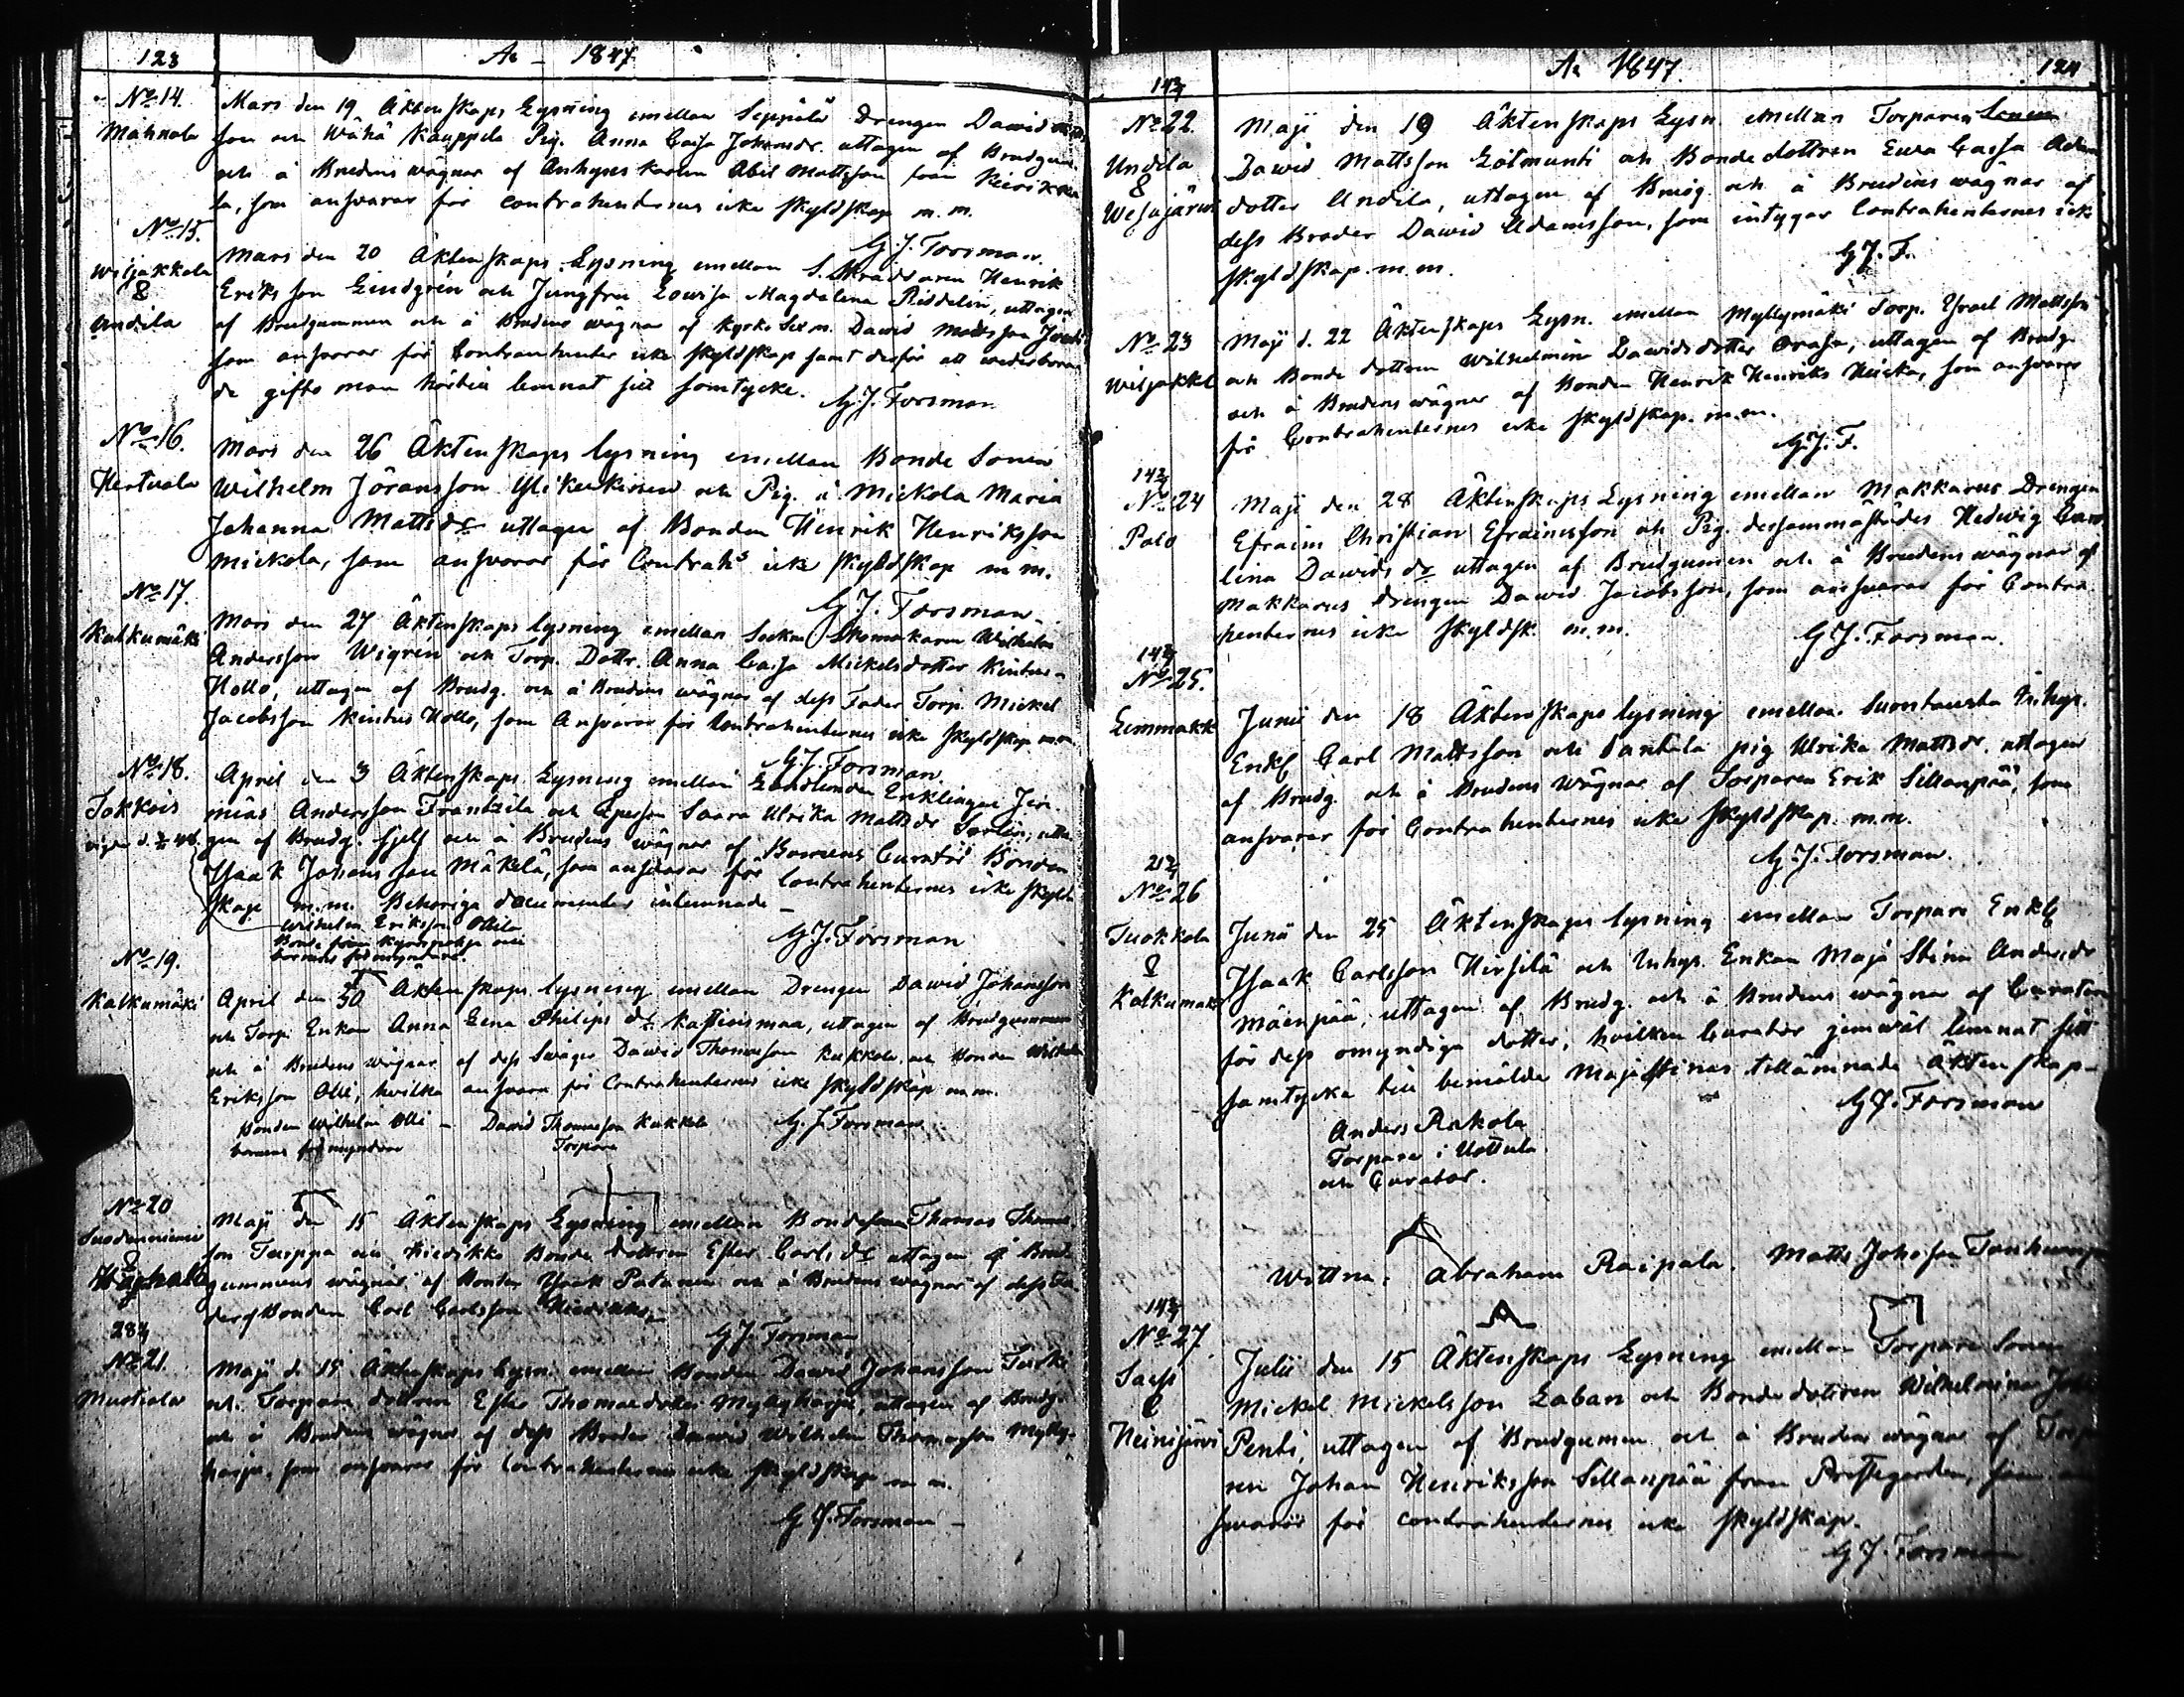 123
Ao 1847
No 14.
Mahnala
Mars den 19 Äktenskaps Lysning emellan Seppälä Drengen Dawid
son och Wähä Kauppila Pig. Anna Caisa Johansdr. uttagen af Brudgum.
och å Brudens wägnar af Enhyses karlen Abel Mattsson från
la, som answarar för contrahenternes icke skyldskap m. m.
G. J. Forsman.
No 15.
Wiljakkala
&
Undila
Mars den 20 Äktenskaps Lysning emellan S. Skräddaren Henrik
Eriksson Lindgrén och Jungfru Lowisa Magdalena Riddelin, uttagen
af Brudgummen och å Brudens wägnar af Kyrko Sexm. Dawid Mattsson
som answarar för Contrahenter icke skyldskap samt derför att wederböran
de giftoman härtill lemnat sitt samtycke.
G. J. Forsman
No 16.
Hertuala
Mars den 26 Äktenskaps lysning emellan Bonde Sonen
Wilhelm Jöransson och Pig. å Mickola Maria
Johanna Mattsdr uttagen af Bonden Henrik Henriksson
Mickola, som answarar för Contrahs icke skyldskap m m.
G J. Forsman.
No 17.
Kalkumäki
Mars den 27 Äktenskaps lysning emellan Sockne Skomakaren Wilhelm
Andersson Wigrén och Torp. Dottr. Anna Caisa Mickelsdotter Kintus-
Hollo, uttagen af Brudg. och å Brudens wägnar af dess Fader Torp. Mickel
Jacobsson Kintus Hollo, som Answarar för Contrahenternes icke skyldskap m.m.
G. J. Forsman
No 18.
Tokkois
April den 3 Äktenskaps Lysning emellan Landbonden Enklingen Jere-
mias Andersson Frantzila och Saara Ulrika Mattsdr uttа-
gen af Brudg. sjelf och å Brudens wägnar af Barnens Curator Bonden
Isaak Johansson Mäkelä, som answarar för Contrahenternes icke skyld-
skap m.m. Behöriga documenter inlemnade –
Wilhelm Eriksson Ollila
Bonde från
barnens förmyndare.
G. J. Forsman
No 19.
Kalkumäki
April den 30 Äktenskaps lysning emellan Drengen Dawid Johansson
och Torp. Enkan Anna Lena Philips dr uttagen af Brudgummen
och å Brudens wägnar af dess Swåger Dawid Thomasson Kukkola och Bonden Wilhelm
Eriksson Olli, hwilka answara för Contrahenternes icke skyldskap m.m.
Bonden Wilhelm Olli – David Thomasson Kukkola
barnens förmyndare Torpare
G. J. Forsman
No 20
Suodenniemi
&
Maji den 15 Äktenskaps Lysning emellan Bondesonen Thomas Thomas
son Turppa och Kiedikko Bonde dottren Ester Carls dr uttagen å Brud-
gummens wägnar af Bonden Isaak Patanen och å Brudens wägnar af dess Fa-
der Bonden Carl Carlsson
G J. Forsman
283
No 21.
Mustiala
Maji d. 15 Äktenskaps Lysn. emellan Bonden Dawid Johansson
och Torpare dottren Ester Thomasdotter Myllyharju, uttagen af Brudg.
och å Brudens wägnar af dess Broder Dawid Wilhelm Thomasson Mylly-
harju, som answarar för Contrahenternes icke skyldskap m m.
G. J. Forsman –
Ao 1847.
124
143
No 22.
Undila
&
Wesajärwi
Maji den 19 Äktenskaps Lysn. emellan Torparen
Dawid Mattsson och Bondedottren Ewa Caisa Adams
dotter Undila, uttagen af Brudg. och å Brudens wägnar af
dess Broder Dawid Adamsson, som intygar Contrahenternes icke
skyldskap. m.m.
G. J. F.
No 23
Wiljakkl
Maji d. 22 Äktenskaps Lysn. emellan Myllymäki Torp. Israel Mattsson
och Bonde dottren Wilhelmina Dawidsdotter uttagen af Brudg.
och å Brudens wägnar af Bonden Henrik Henriks som answarar
för Contrahenternes icke skyldskap. m.m.
G. J. F.
143
No 24
Palo
Maji den 28 Äktenskaps Lysning emellan Makkarus Drengen
Efraim Christian Efraimsson och Pig. dersammastädes Hedwig Caro
lina Dawids dr uttagen af Brudgumen och å Brudens wägnar af
Makkarus drengen Dawid Jacobsson, som answarar för Contra-
henternes icke skyldsk. m.m.
G J. Forsman.
143
No 25.
Junii den 18 Äktenskaps lysning emellan Inhys.
Enkl. Carl Mattsson och pig Ulrika Mattsdr. uttagen
af Brudg. och å Brudens Wägnar af Torparen Erik Sillanpää, som
answarar för Contrahenternes icke skyldskap. m.m.
G. J. Forsman.
No 26
Tuokkola
&
Kalkumäki
Junii den 25 Äktenskaps lysning emellan Torpare Enkl.
Isaak Carlsson Hirsilä och Inhys. Enkan Maja Stina Andersdr
Mäenpää, uttagen af Brudg. och å Brudens wägnar af Curatorn
för dess omyndiga dotter, hvilken Curator jemwäl lemnat sitt
samtycke till bemälde Maja Stinas tillämnade Äktenskap–
G J. Forsman
Anders Rakola
Torpare i Uottula
och Curator.
Wittna: Abraham Raipala. Matts Johansson
143
No 27
&
Heinijärwi
Julii den 15 Äktenskaps Lysning emellan Torpare Sonen
Mickel Mickelsson Laban och Bondedottren Wilhelmina
Penti, uttagen af Brudgumen och å Brudens wägnar af
Johan Henriksson Sillanpää från Prestegården, som an-
swarar för contrahenternes icke skyldskap.
G J. Forsman